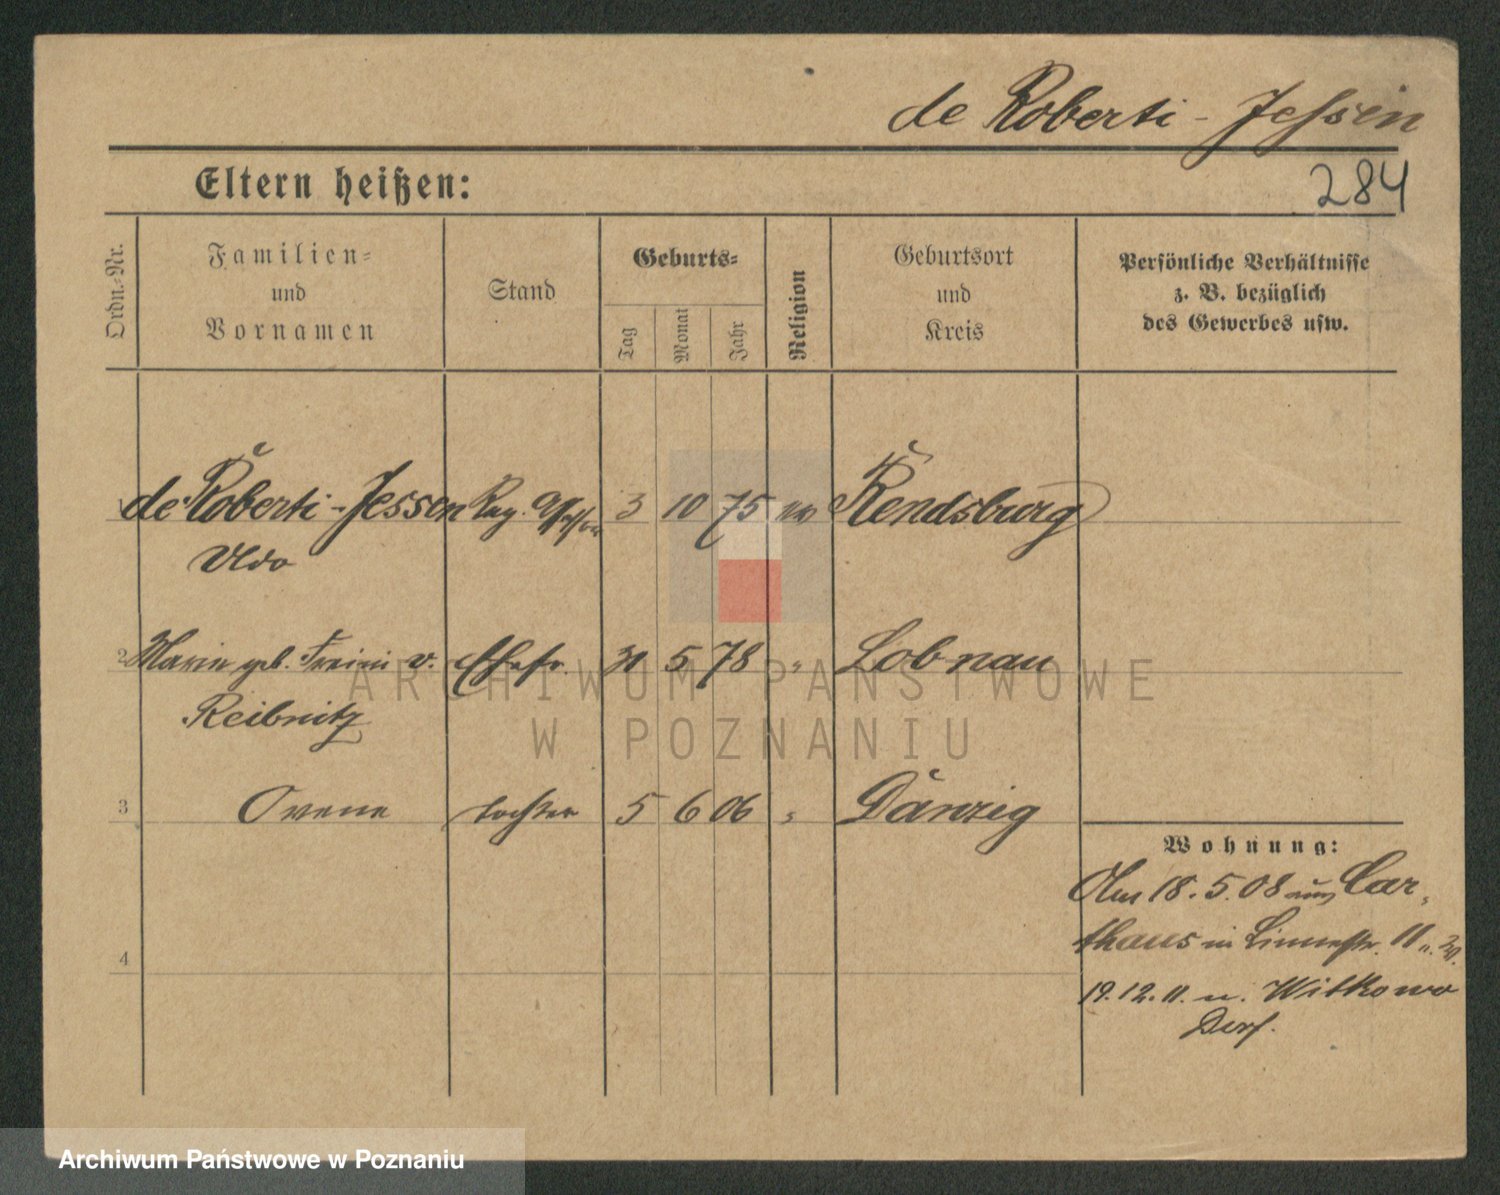 de Roberti-Jessen
Eltern heißen:
284
Ordn.-Nr.
Familien-
und
Vornamen
Stand
Geburts-
Tag
Monat
Jahr
Religion
Geburtsort
und
Kreis
Persönliche Verhältnisse
z. B. bezüglich
des Gewerbes usw.
1 de Roberti-Jessen Reg. Assessor 3 10 75 ev Rendsburg
Udo
2 Marie geb. Freiin v. Ehefr. 5 78 " Lobnau
Reibnitz
3 tochter 5 6 06 " Danzig
4
Wohnung:
18.5.08 aus Car-
thaus in 11 u.
19.12.11. n. Witkowo
Dorf.
ARCHIWUM PAŃSTWOWE
W POZNANIU
Archiwum Państwowe w Poznaniu